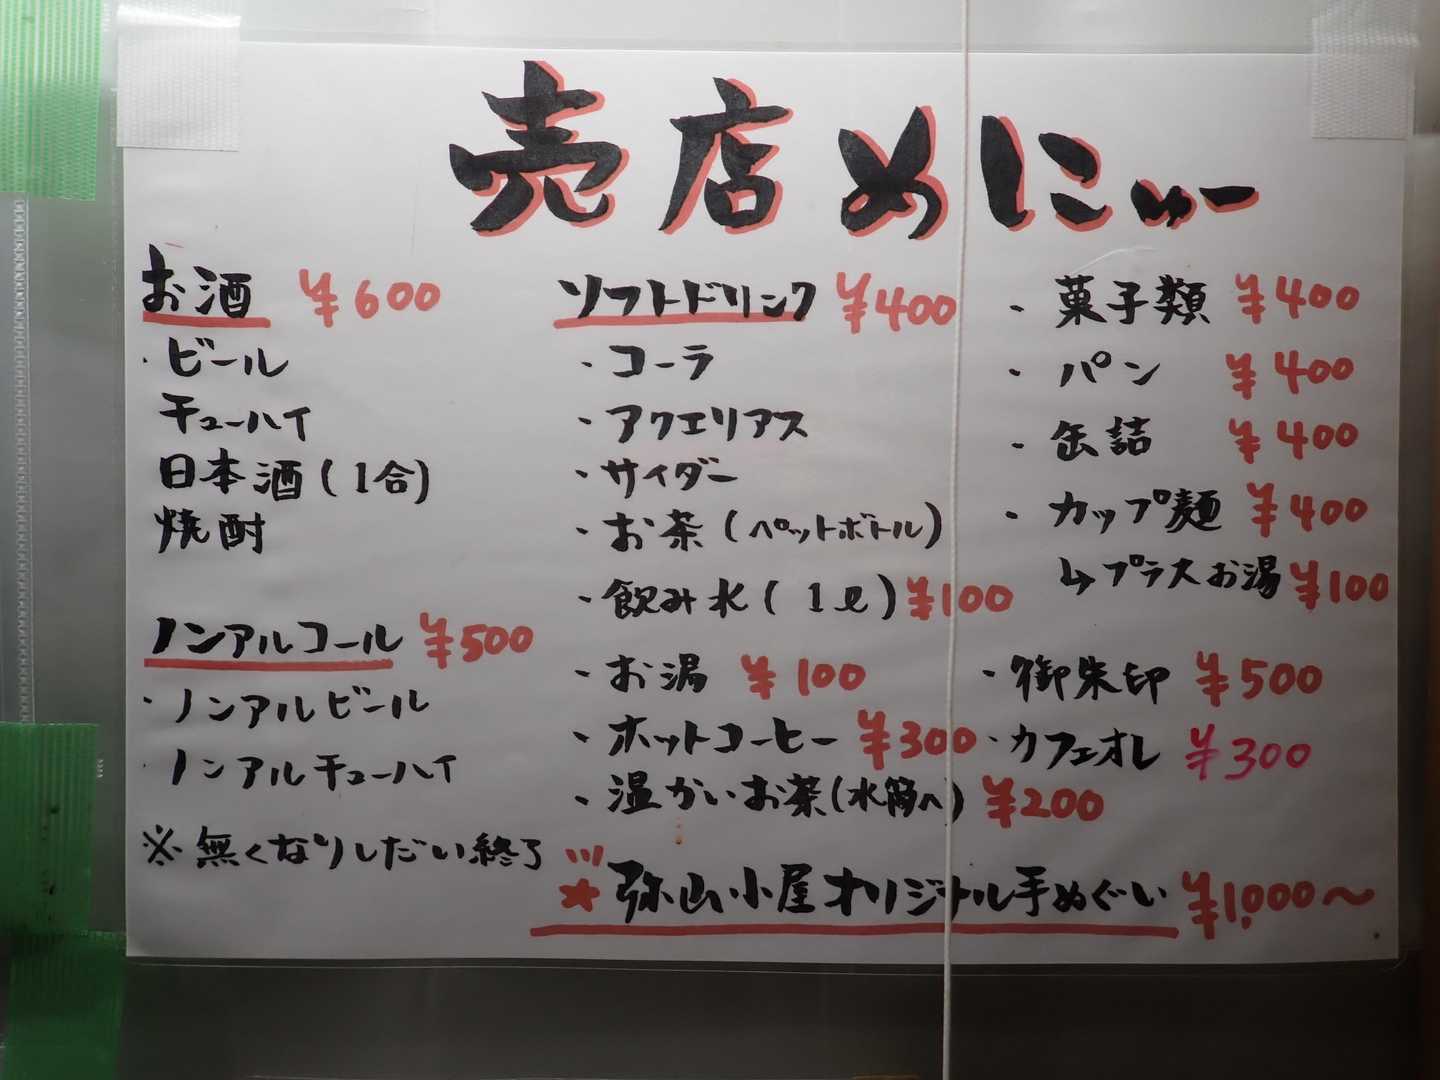 売店めにゅー
お酒 ¥600
・ビール
チューハイ
日本酒(1合)
焼酎
ノンアルコール ¥500
・ノンアルビール
・ノンアルチューハイ
※無くなりしだい終了
ソフトドリンク ¥400
・コーラ
・アクエリアス
・サイダー
・お茶(ペットボトル)
・飲み水(1ℓ) ¥100
・お湯 ¥100
・ホットコーヒー ¥300
・温かいお茶(水筒へ) ¥200
・菓子類 ¥400
・パン ¥400
・缶詰 ¥400
・カップ麺 ¥400
↳プラスお湯 ¥100
・御朱印 ¥500
・カフェオレ ¥300
★弥山小屋オリジナル手ぬぐい ¥1,000〜